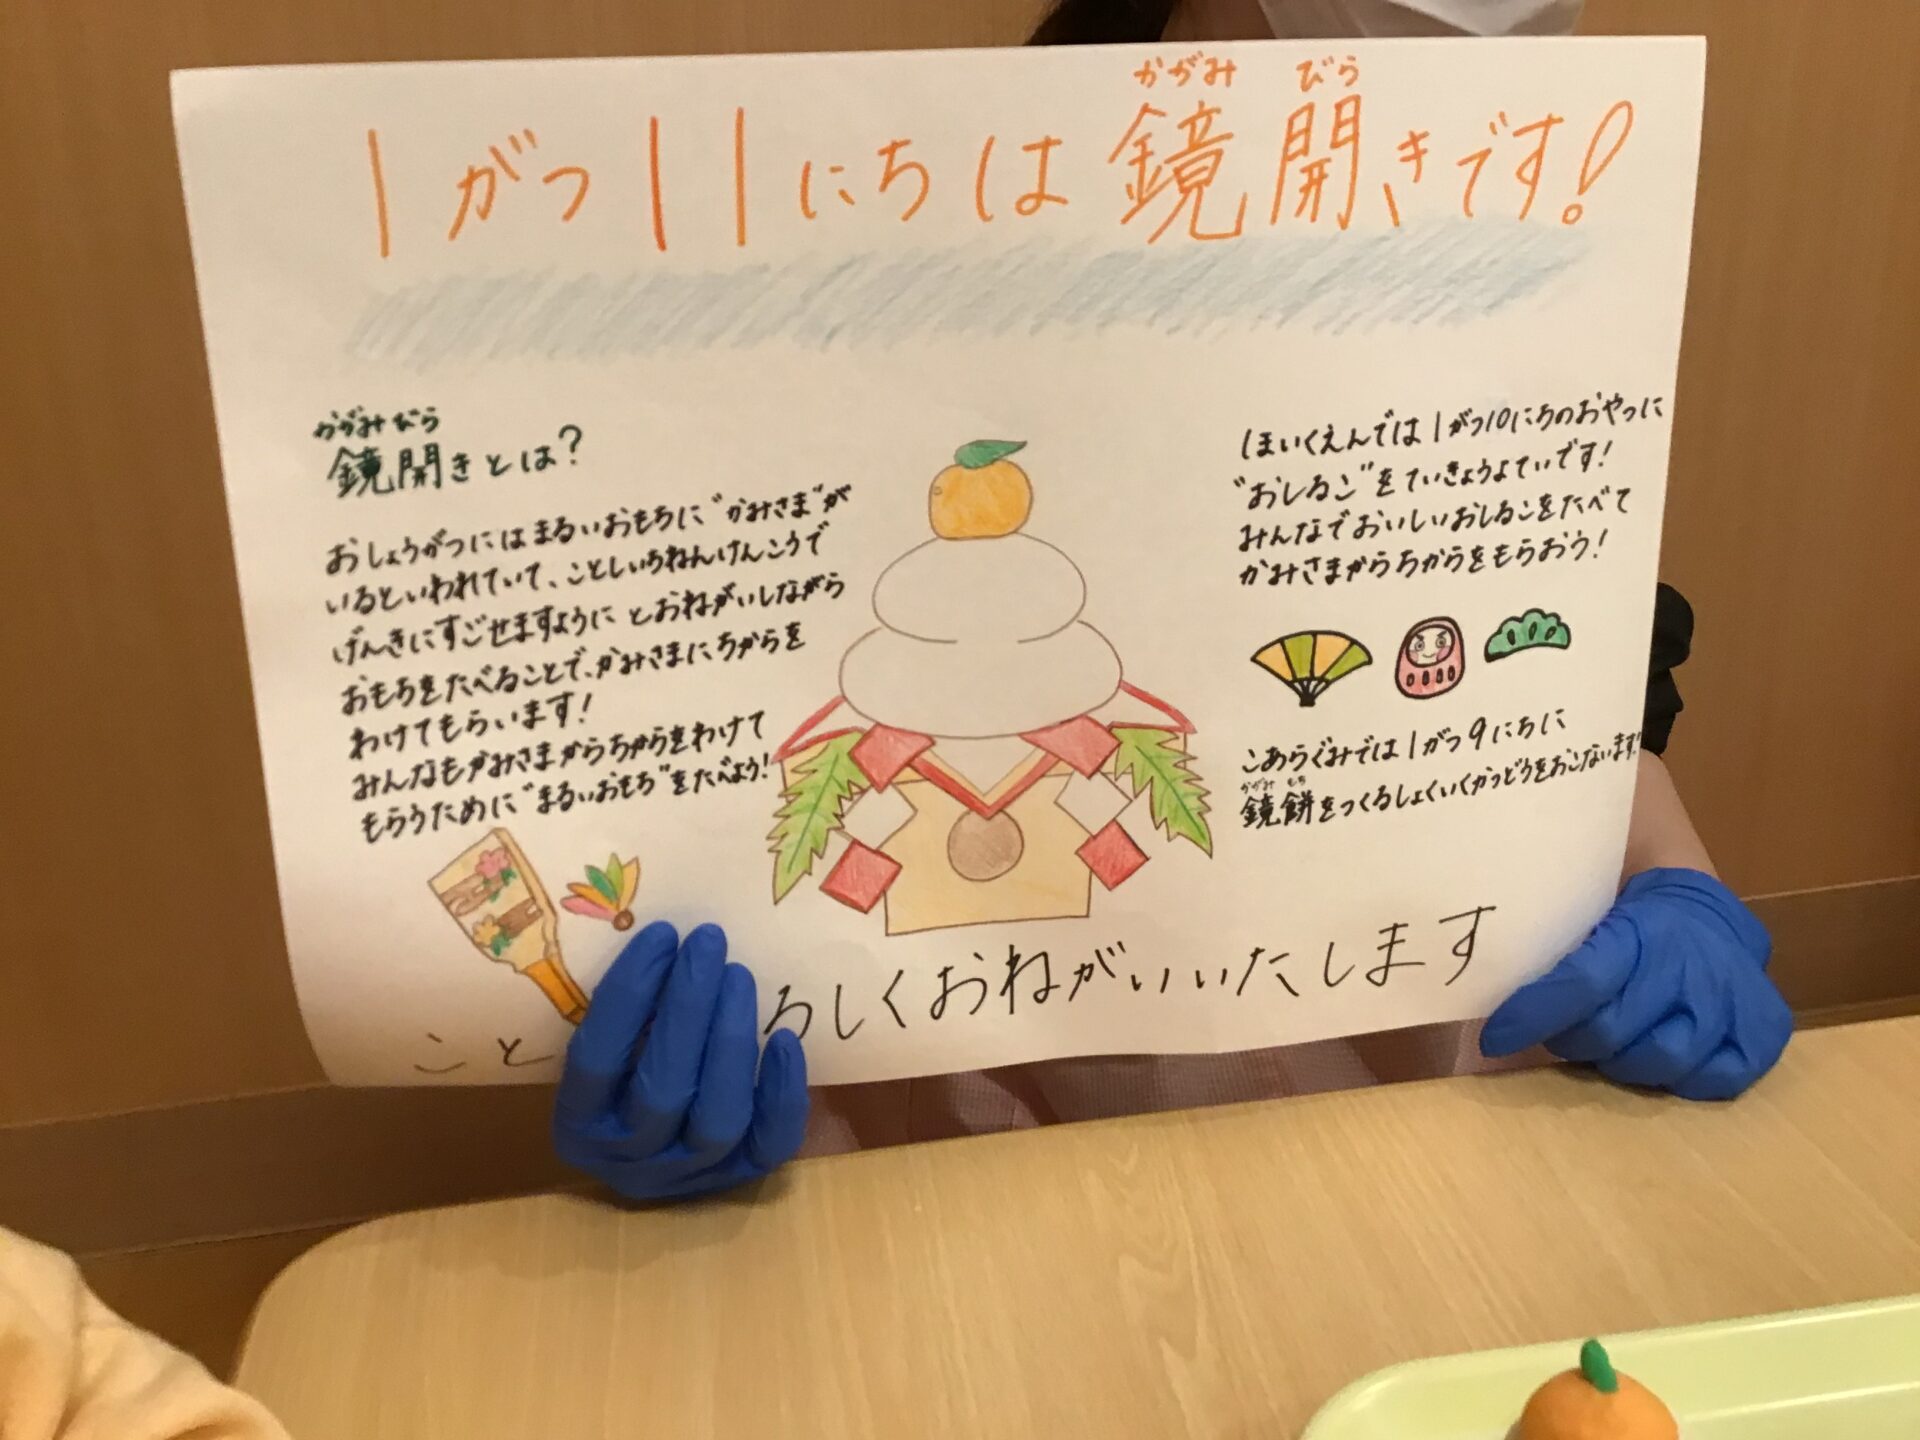 かがみ びら
1がつ11にちは鏡開きです!
かがみびら
鏡開きとは?
おしょうがつにはまるいおもちに"かみさま"が
いるといわれていて、ことしいちねんけんこうで
げんきにすごせますようにとおねがいしながら
おもちをたべることで、かみさまにちからを
わけてもらいます!
みんなもかみさまからちからをわけて
もらうために"まるいおもち"をたべよう!
ほいくえんでは1がつ10にちのおやつに
"おしるこ"をていきょうよていです!
みんなでおいしいおしるこをたべて
かみさまからちからをもらおう!
こあらぐみでは1がつ9にちに
かがみ もち
鏡餅をつくるしょくいくかつどうをおこないます!
こと ろしくおねがいいたします